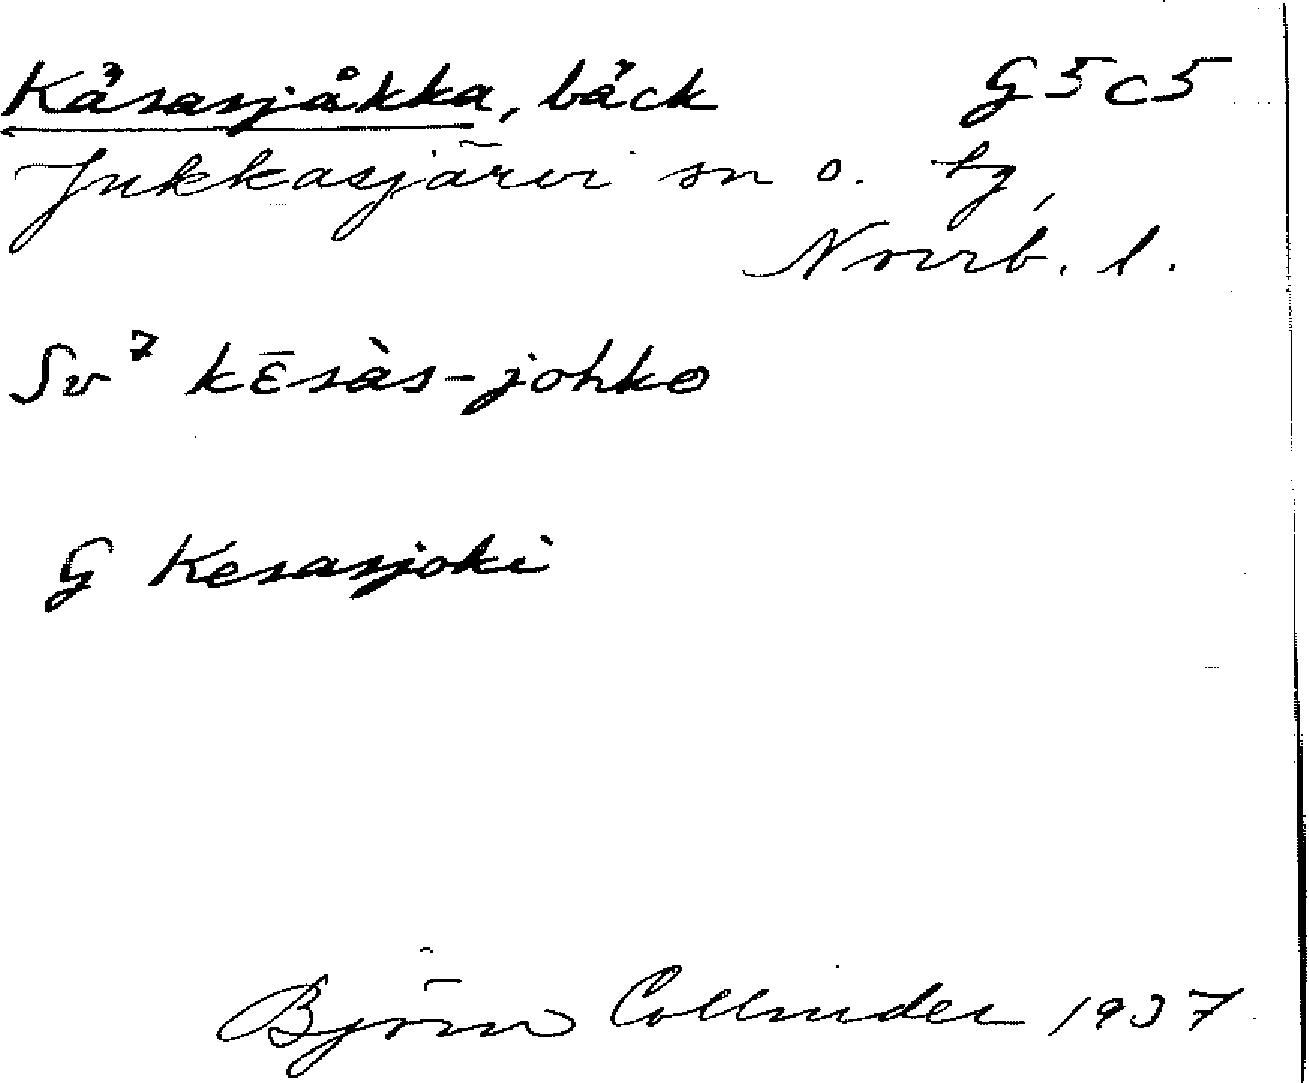 Käsasjåkka, bäck G5c5
Jukkasjärvi sn o. tg,
Norrb. l.
Sv⁷ kε̄sàs-johko
G Kesasjoki
Björn Collinder 1937